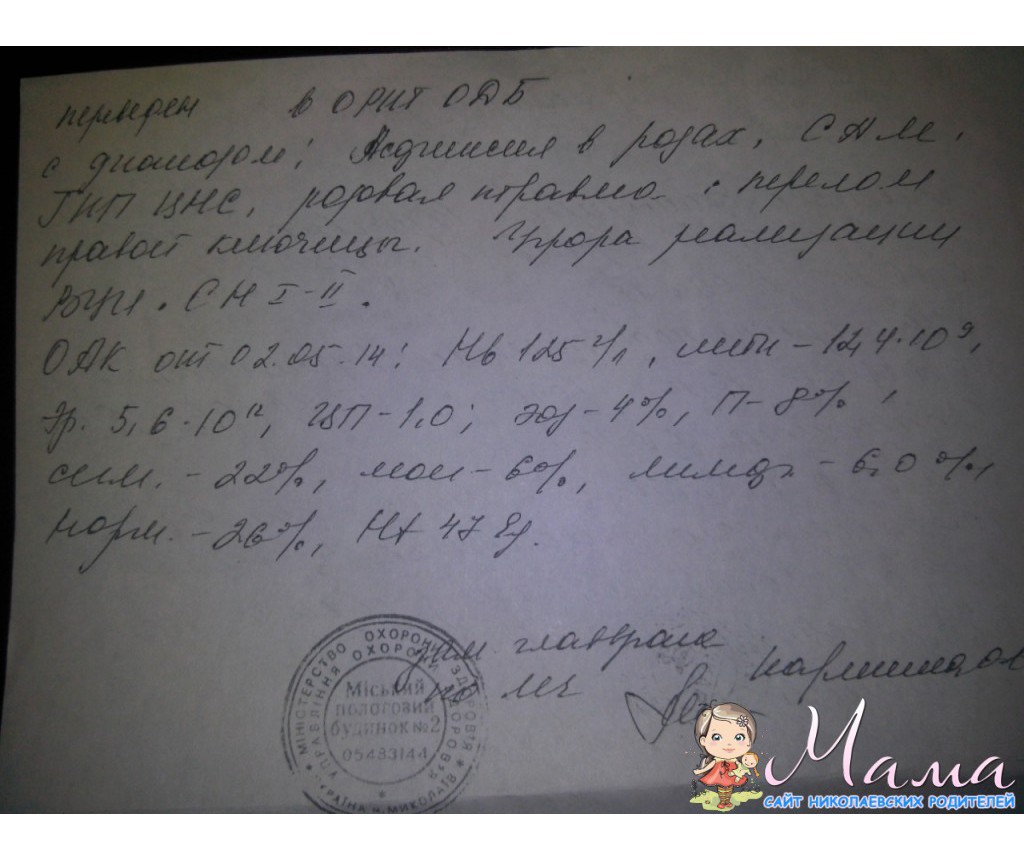 переведен в ОРИТ ОДБ
с диагнозом: Асфиксия в родах, САМ,
ГИП ЦНС, родовая травма: перелом
правой ключицы. Угроза реализации
СН I-II.
ОАК от 02.05.14: Нв 125 г/л, - 12,4·10⁹,
Эр. 5,6·10¹², ЦП-1,0; эоз-4%, П-8%,
сегм. -22%, мон-6%, лимф. -60%,
норм. -26%, Ht 47 ед.
зам. главврача
по
МІНІСТЕРСТВО ОХОРОНИ ЗДОРОВ'Я
УПРАВЛІННЯ ОХОРОНИ ЗДОРОВ'Я
Міський
пологовий
будинок №2
05483144
УКРАЇНА м. МИКОЛАЇВ
Мама
САЙТ НИКОЛАЕВСКИХ РОДИТЕЛЕЙ